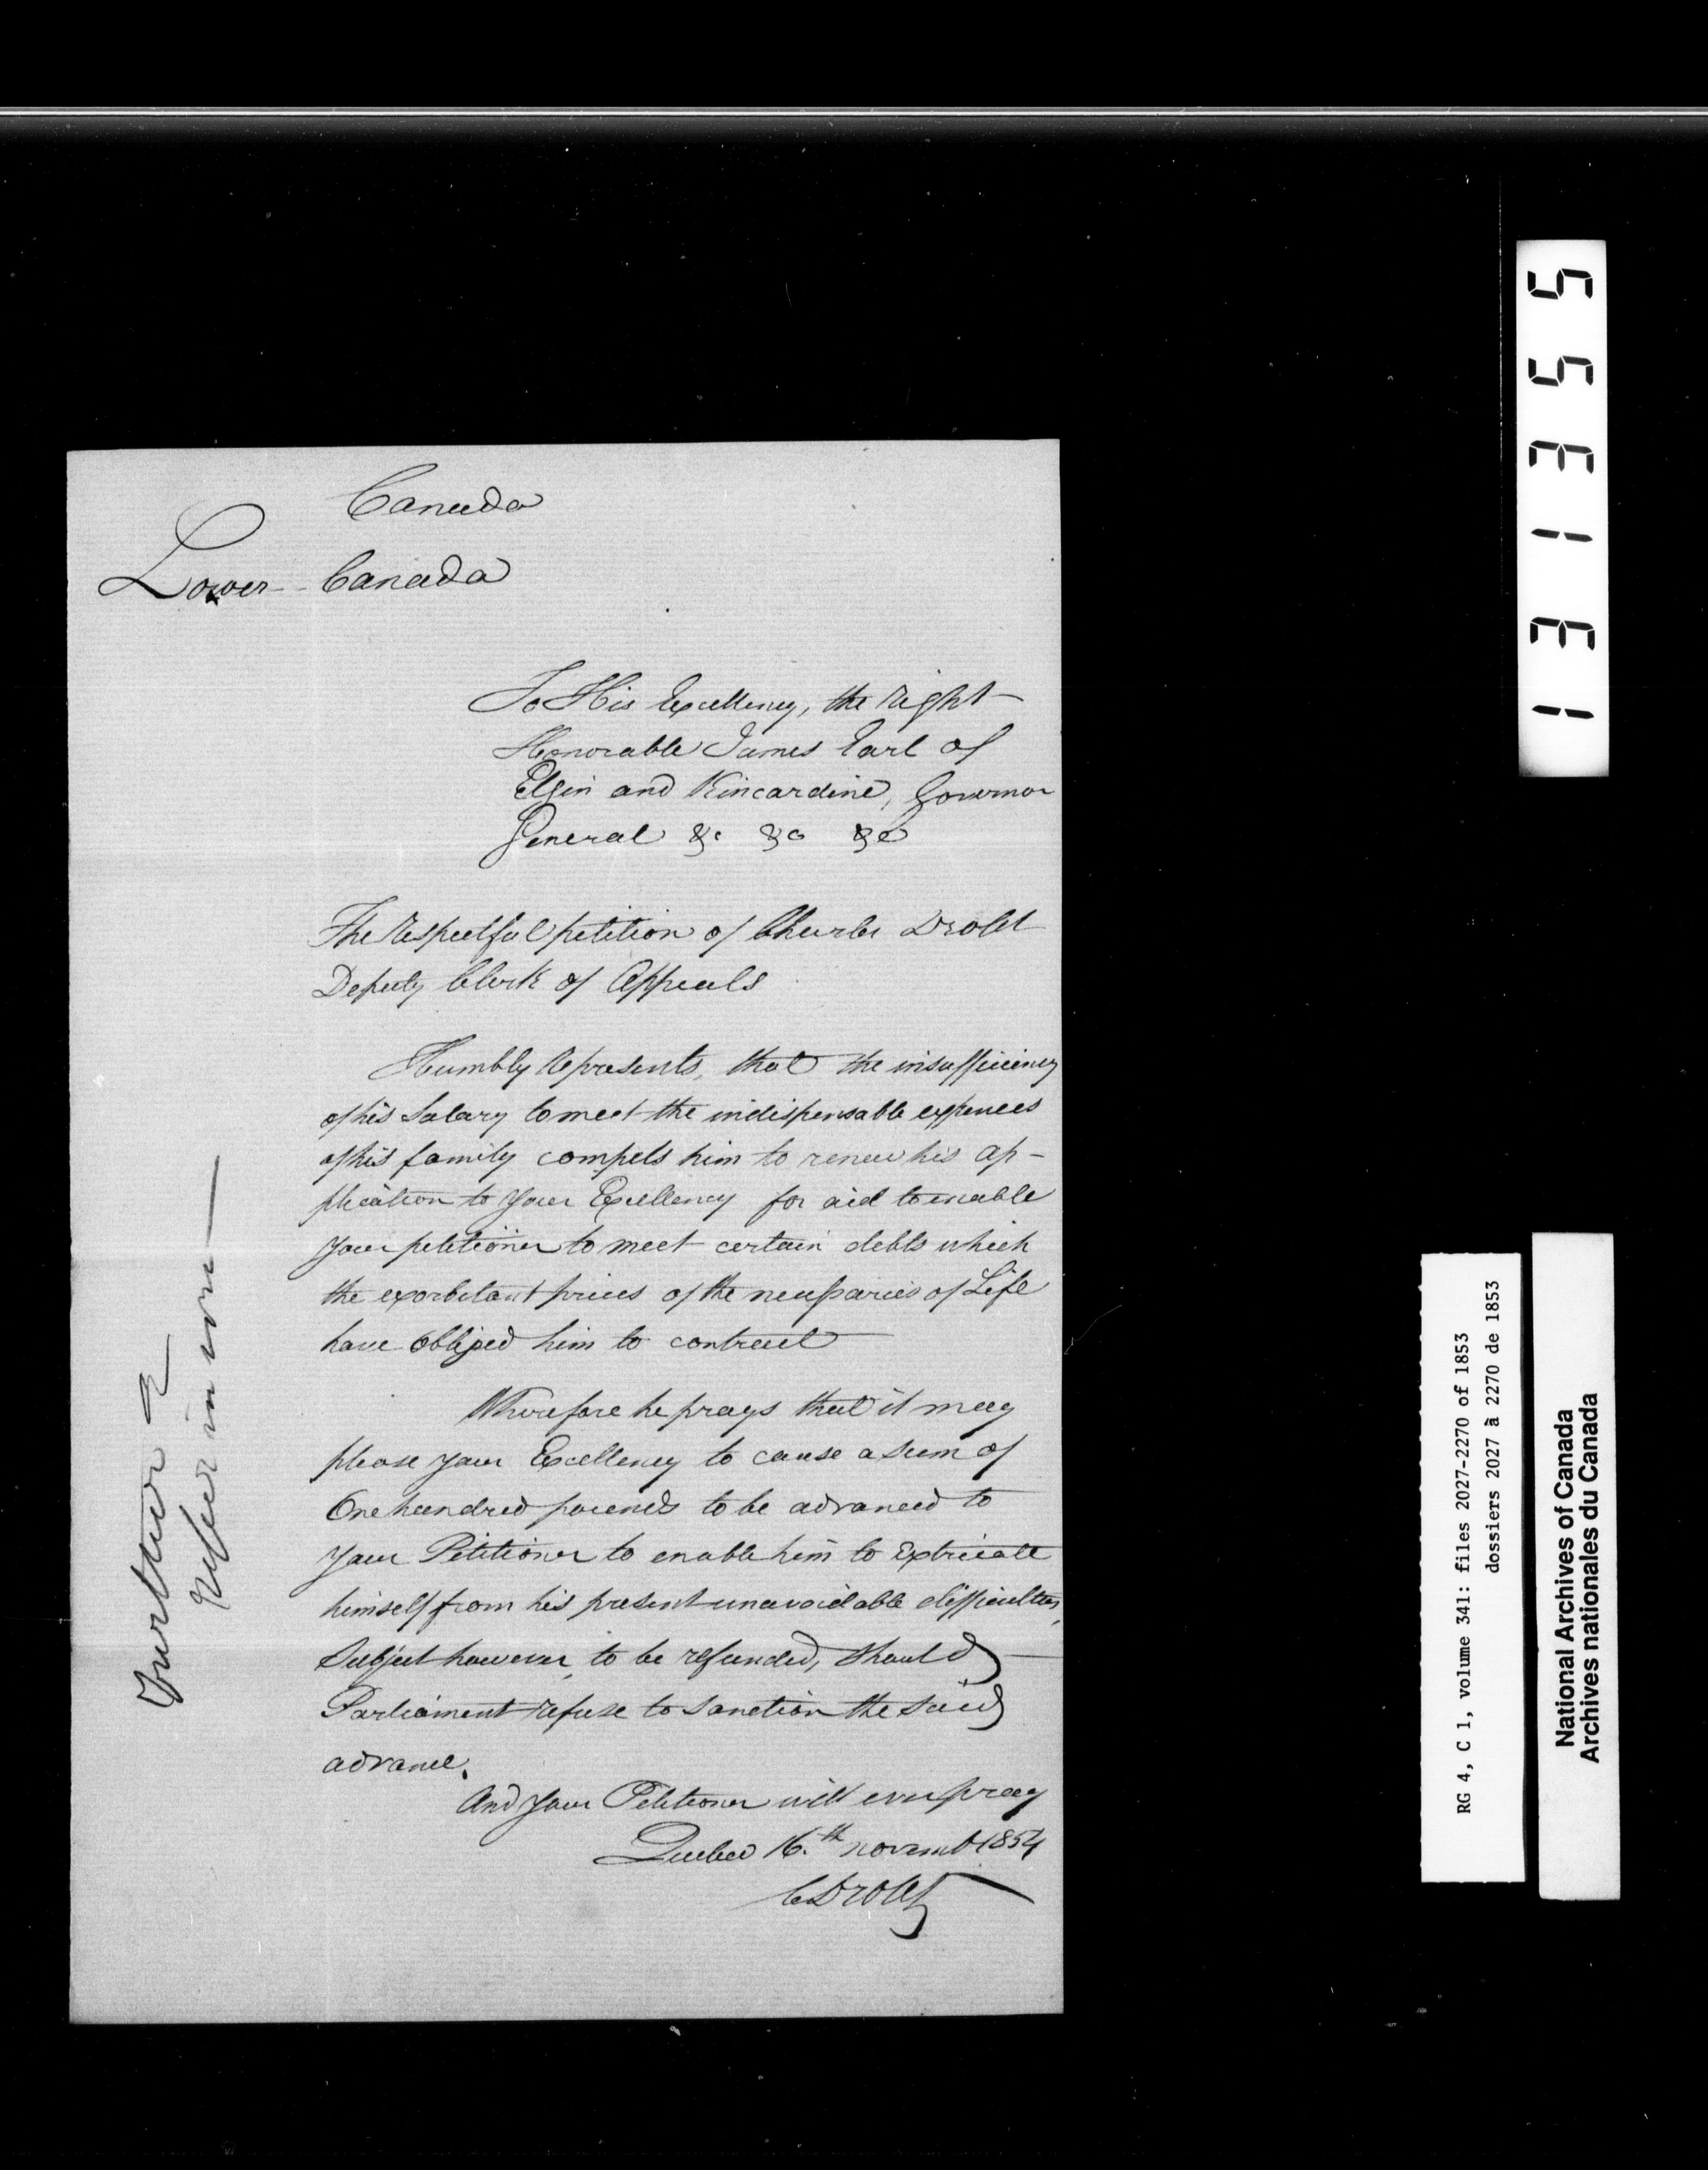 Canada
Lower - Canada
To His Excellency, the right
Honorable James Earl of
Elgin and Kincardine, Governor
General &c &c &c
The respectful petition of Charles Drolet
Deputy Clerk of Appeals
Humbly represents, that the insufficiency
of his Salary to meet the indispensable expences
of his family compels him to renew his ap-
plication to your Excellency for aid to enable
your petitioner to meet certain debts which
the exorbitant prices of the necessaries of Life
have obliged him to contract
Wherefore he prays that it may
please your Excellency to cause a sum of
One hundred pounds to be advanced to
your Petitioner to enable him to extricate
himself from his present unavoidable difficulties,
Subject however, to be refunded, should
Parliament refuse to sanction the said
advance.
And your Petitioner will ever pray
Quebec 16.th novemb 1854
C Drolet
Further
Refer in
1 3 1 3 5 5
RG 4, C 1, volume 341: files 2027-2270 of 1853
dossiers 2027 à 2270 de 1853
National Archives of Canada
Archives nationales du Canada